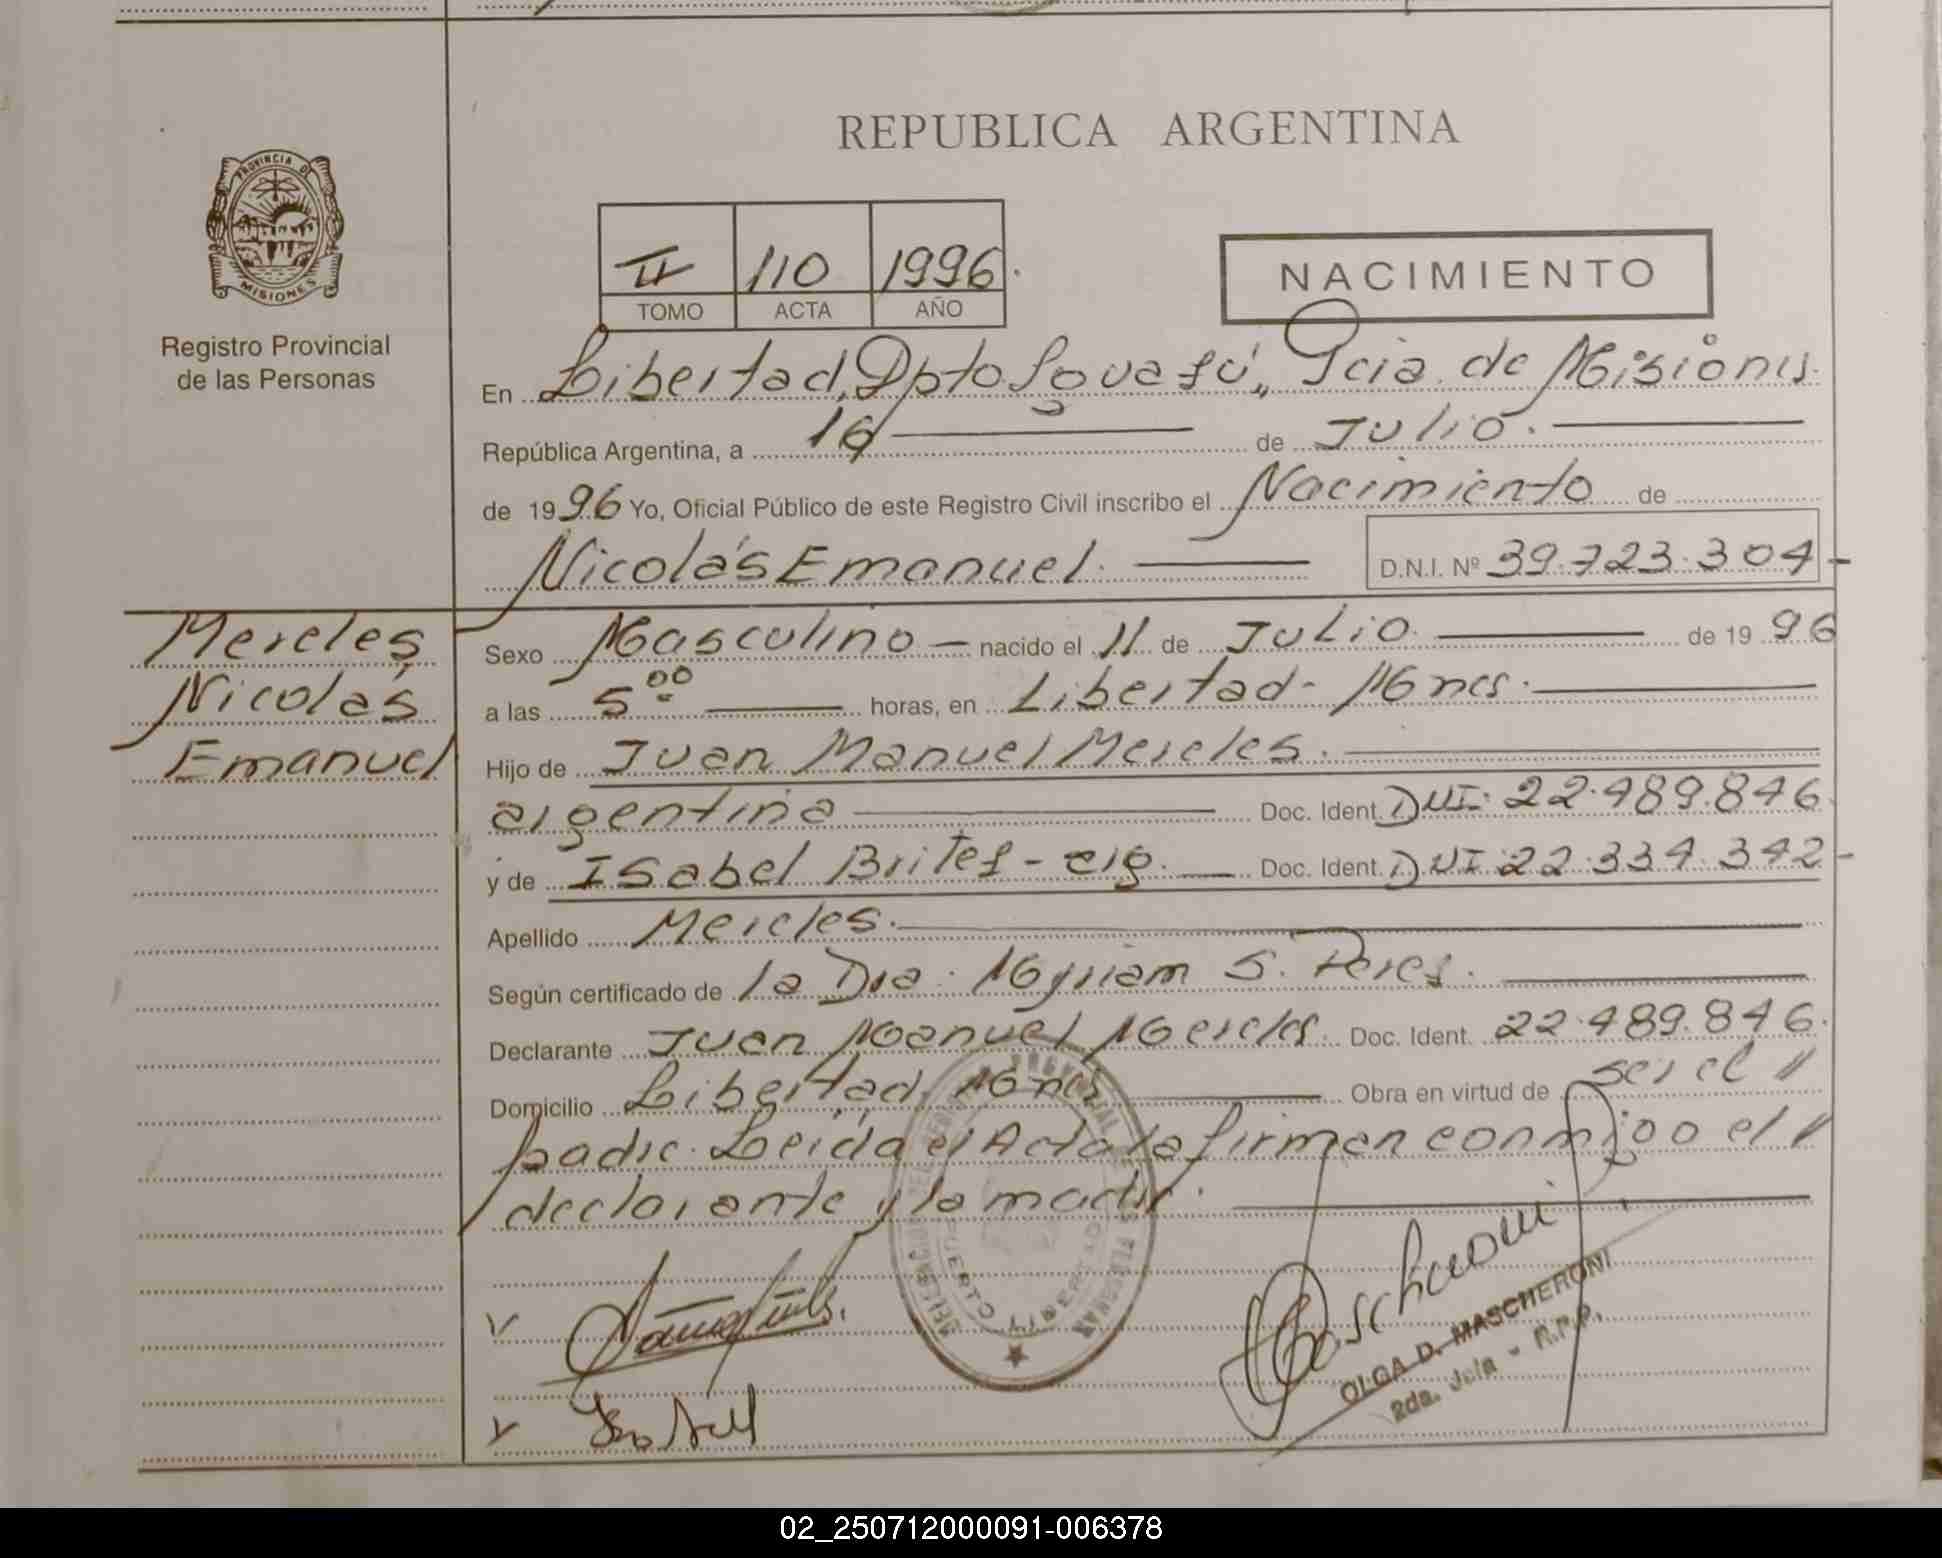 REPUBLICA ARGENTINA
PROVINCIA DE
MISIONES
Registro Provincial
de las Personas
II 110 1996.
TOMO ACTA AÑO
NACIMIENTO
En Libertad, Dpto. Iguazú, Pcia. de Misiones.
República Argentina, a 16 de Julio.
de 1996 Yo, Oficial Público de este Registro Civil inscribo el Nacimiento de
Nicolás Emanuel. D.N.I. Nº 39.723.304-
Mereles
Nicolás
Emanuel
Sexo Masculino - nacido el 11 de Julio. de 1996
a las 5:00 horas, en Libertad- Mnes.
Hijo de Juan Manuel Mereles.
argentina Doc. Ident. DNI. 22.489.846.
y de Isabel Britez - arg. Doc. Ident. DNI. 22.334.342-
Apellido Mereles.
Según certificado de la Dra. Myriam S. Perez.
Declarante Juan Manuel Mereles. Doc. Ident. 22.489.846.
Domicilio Libertad, Mnes. Obra en virtud de ser el //
padre. Leída el Acta la firman conmigo el //
declarante y la madre.
OLGA D. MASCHERONI
2da. Jefa - R.P.P.
02_250712000091-006378